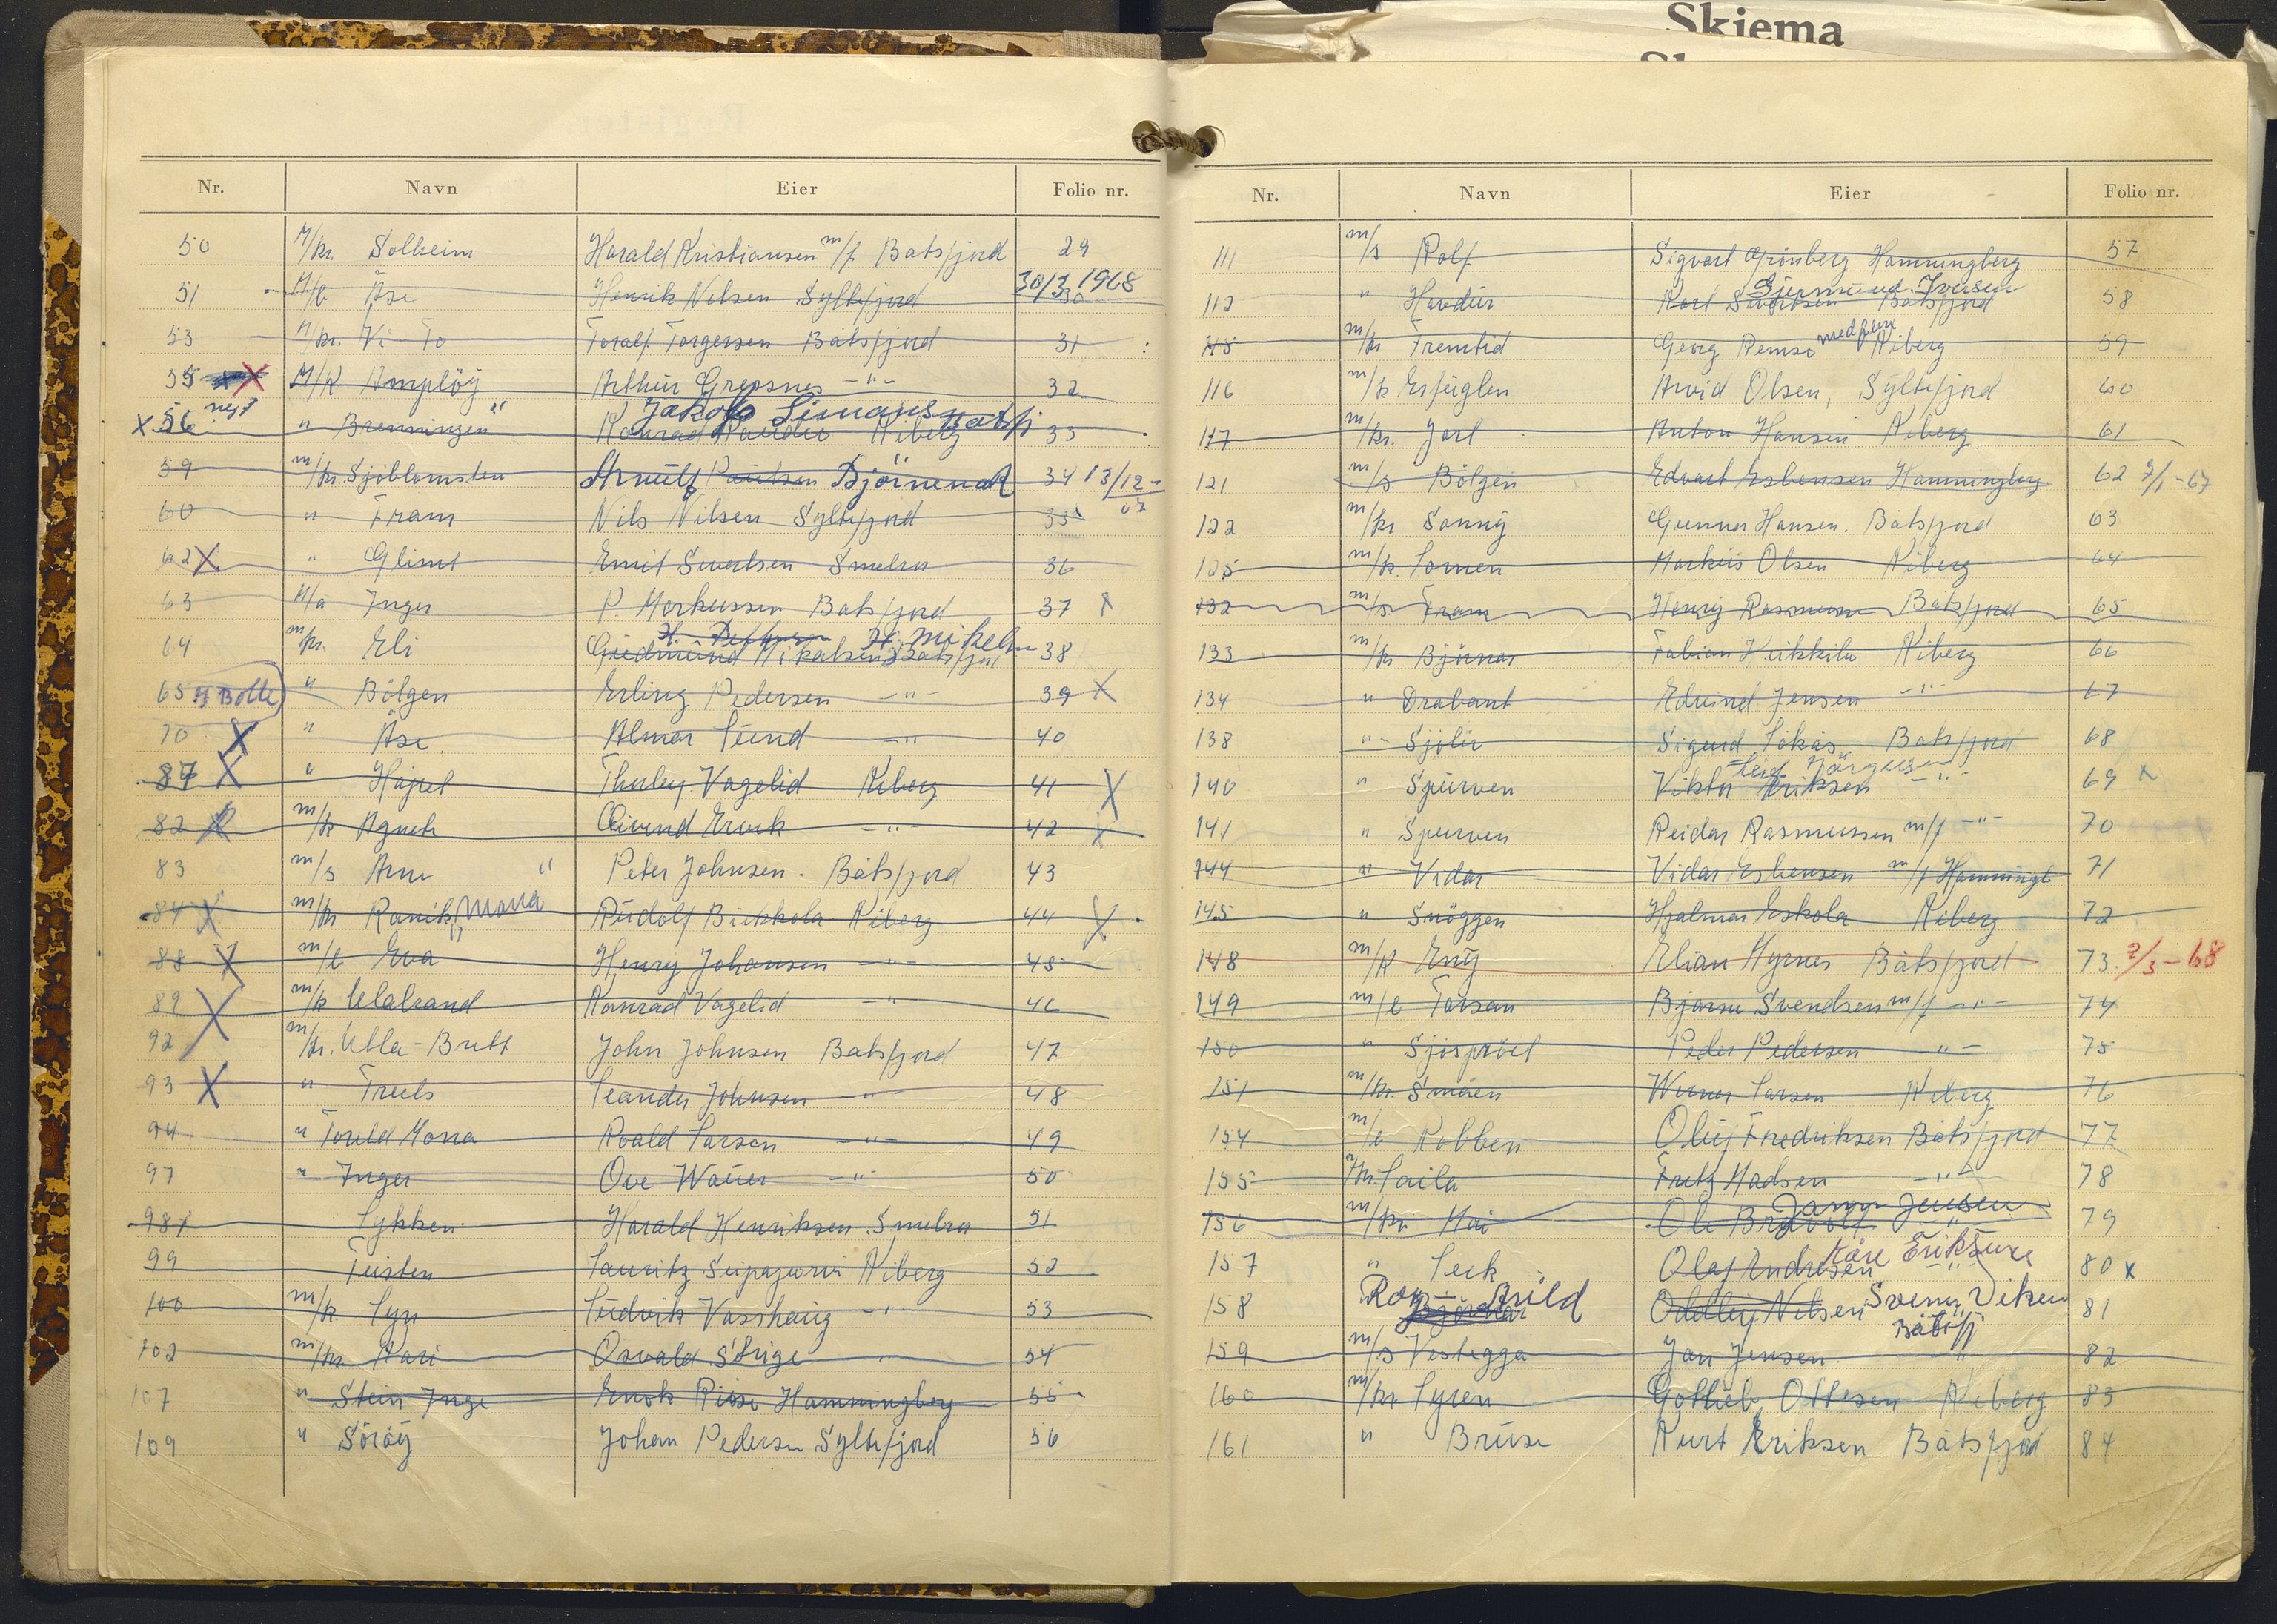 Skjema
Nr. Navn Eier Folio nr.
50 M/kr. Solheim Harald Kristiansen m/f Båtsfjord 29
51 M/b Åse Henrik Nilsen Syltefjord 30 30/3 1968
53 M/kr. Vi-To Toralf Torgersen Båtsfjord 31
55 X M/k Amplöy Arthur Grepsnes -"- 32
Jakob Båtsfj
X 56 " Brenningen Konrad Kiberg 33
59 m/kr. Sjöblomsten Arnulf Paulsen Djöinenak 34 13/12-67
60 " Fram Nils Nilsen Syltefjord 35
62 X " Glimt Emil Sivertsen Smelror 36
63 M/a Inger P. Markussen Båtsfjord 37 X
H. Mikelsen
64 m/kr. Eli Gudmund Mikalsen Båtsfjord 38
65 " Bölgen Erling Pedersen -"- 39 X
70 X " Åse Almar Lund -"- 40
87 X " Håjul Thorleif Vagelid Kiberg 41 X
82 X m/k Agnete Eivind Ervik -"- 42 X
83 m/s Arne Peter Johnsen. Båtsfjord 43
84 X m/kr Ronik Mona Rudolf Bikkola Kiberg 44 X
88 X m/b Eva Henry Johansen -"- 45
89 X m/k Ulabrand Konrad Vagelid -"- 46
92 m/kr. Ulla-Britt John Johnsen Båtsfjord 47
93 X " Truls Leander Johnsen -"- 48
94 " Torild Mona Roald Larsen -"- 49
97 " Inger Ove Wauer -"- 50
981 Lykken Harald Henriksen. Smelror 51
99 Teisten Lauritz Seipajærvi Kiberg 52
100 m/k Lyn Ludvik Vasshaug -"- 53
102 m/kr Kari Osvald Strige " 54
107 " Stein Inge Enok Risse Hamningberg 55
109 " Söröy Johan Pedersen Syltefjord 56
Nr. Navn Eier Folio nr.
111 m/s Rolf Sigvart Grönberg Hamningberg 57
Gurmund Iversen
112 " Havdur Karl Sivertsen Båtsfjord 58
115 m/kr Fremtid Georg Remse med flere Kiberg 59
116 m/k Erfuglen Arvid Olsen, Syltefjord 60
117 m/kr. Jarl Anton Hansen Kiberg 61
121 m/s. Bölgen Edvart Esbensen Hamningberg 62 7/1-67
122 m/kr Sonny Gunnar Hansen. Båtsfjord 63
125 m/k. Lomen Markus Olsen Kiberg 64
132 m/s Fram Henry Rasmussen Båtsfjord 65
133 m/kr Björnar Fabian Kirkkila Kiberg 66
134 " Drabant Edvind Jensen -"- 67
138 " Sjöliv Sigurd Båtsfjord 68
Leif Jörgensen
140 " Spurven Viktor Eriksen -"- 69 x
141 " Spurven Reidar Rasmussen m/f -"- 70
144 " Vidar Vidar Esbensen m/f Hamningb 71
145 " Snöggen Hjalmar Eskola Kiberg 72
148 m/k Eny Elian Myrnes Båtsfjord 73. 2/3-68
149 m/b Torsan Bjarne Svendsen m/f -"- 74
150 " Sjöspröit Peder Pedersen -"- 75
151 m/kr. Småen Werner Larsen Kiberg 76
154 m/b Kobben Oluf Fredriksen Båtsfjord 77
155 m/kr. Laila Fritz Madsen -"- 78
Jensen
156 m/kr Mai Ole Bredvolf " 79
Kåre Eriksen
157 " Leik Olaf Andresen " 80 x
158 Roy Arild Björnar Oddleif Nilsen Svenn Viken Båtsfj 81
159 m/s Vestegga Jan Jensen " 82
160 m/kr Lyren Gottlieb Ottesen Kiberg 83
161 " Bruse Kurt Eriksen Båtsfjord 84